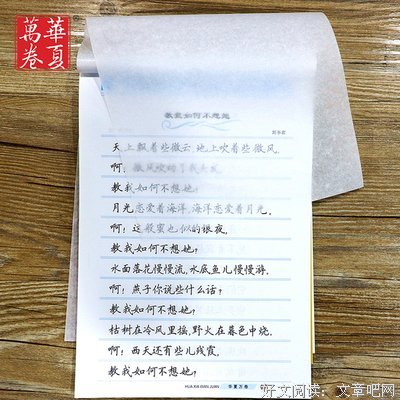 華夏
萬卷
教我如何不想她
天上飘着些微云,地上吹着些微风。
啊!微风吹动了我头发,
教我如何不想她?
月光恋爱着海洋,海洋恋爱着月光。
啊!这般蜜也似的银夜,
教我如何不想她?
水面落花慢慢流,水底鱼儿慢慢游。
啊!燕子你说些什么话?
教我如何不想她?
枯树在冷风里摇,野火在暮色中烧。
啊!西天还有些儿残霞,
教我如何不想她?
HUA XIA WAN JUAN 华夏万卷
好文阅读:文章吧网